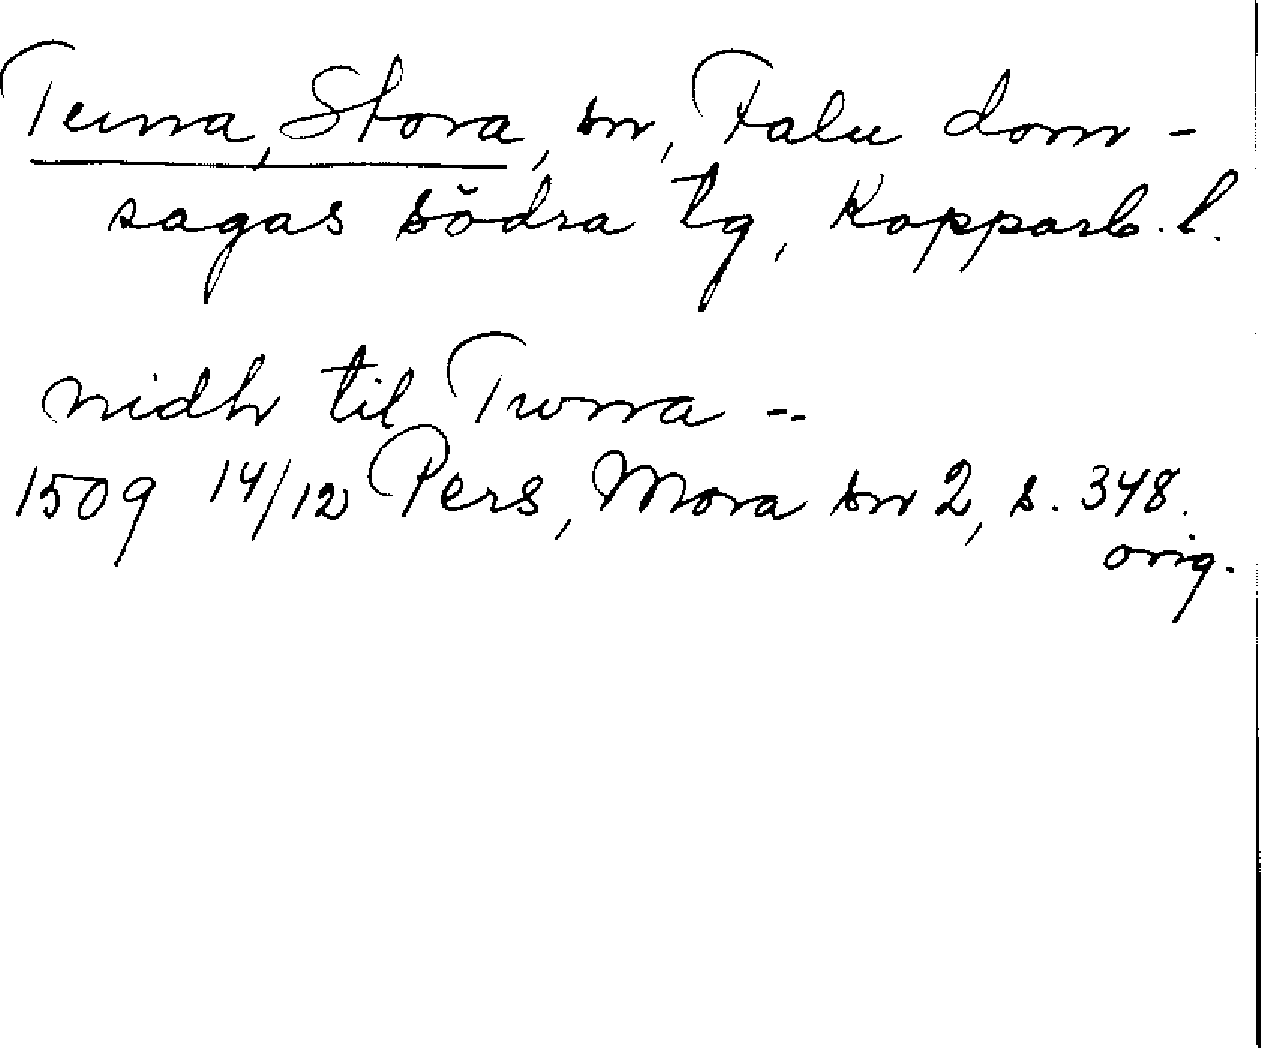 Tuna, Stora, sn, Falu dom-
sagas södra tg, Kopparb. l.
nidh til Twna --
1509 14/12 Pers, Mora sn 2, s. 348.
orig.